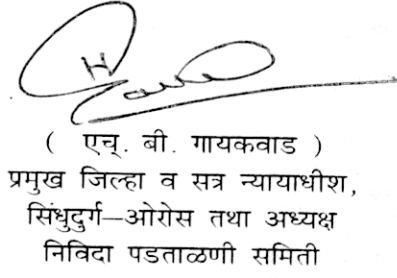 ( एच्. बी. गायकवाड )
प्रमुख जिल्हा व सत्र न्यायाधीश,
सिंधुदुर्ग–ओरोस तथा अध्यक्ष
निविदा पडताळणी समिती